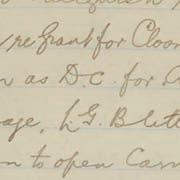 /re Grant for Cloon
as D.C. for
age, L.G. Blett
to open Cam